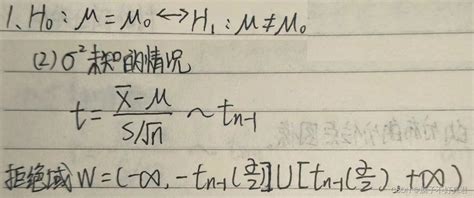 1、H₀：μ=μ₀ ⟷ H₁：μ≠μ₀
(2) σ²未知的情况
t = (X̄-μ)/(S/√n) ~ tₙ₋₁
拒绝域W=(-∞, -tₙ₋₁(α/2)]∪[tₙ₋₁(α/2), +∞)